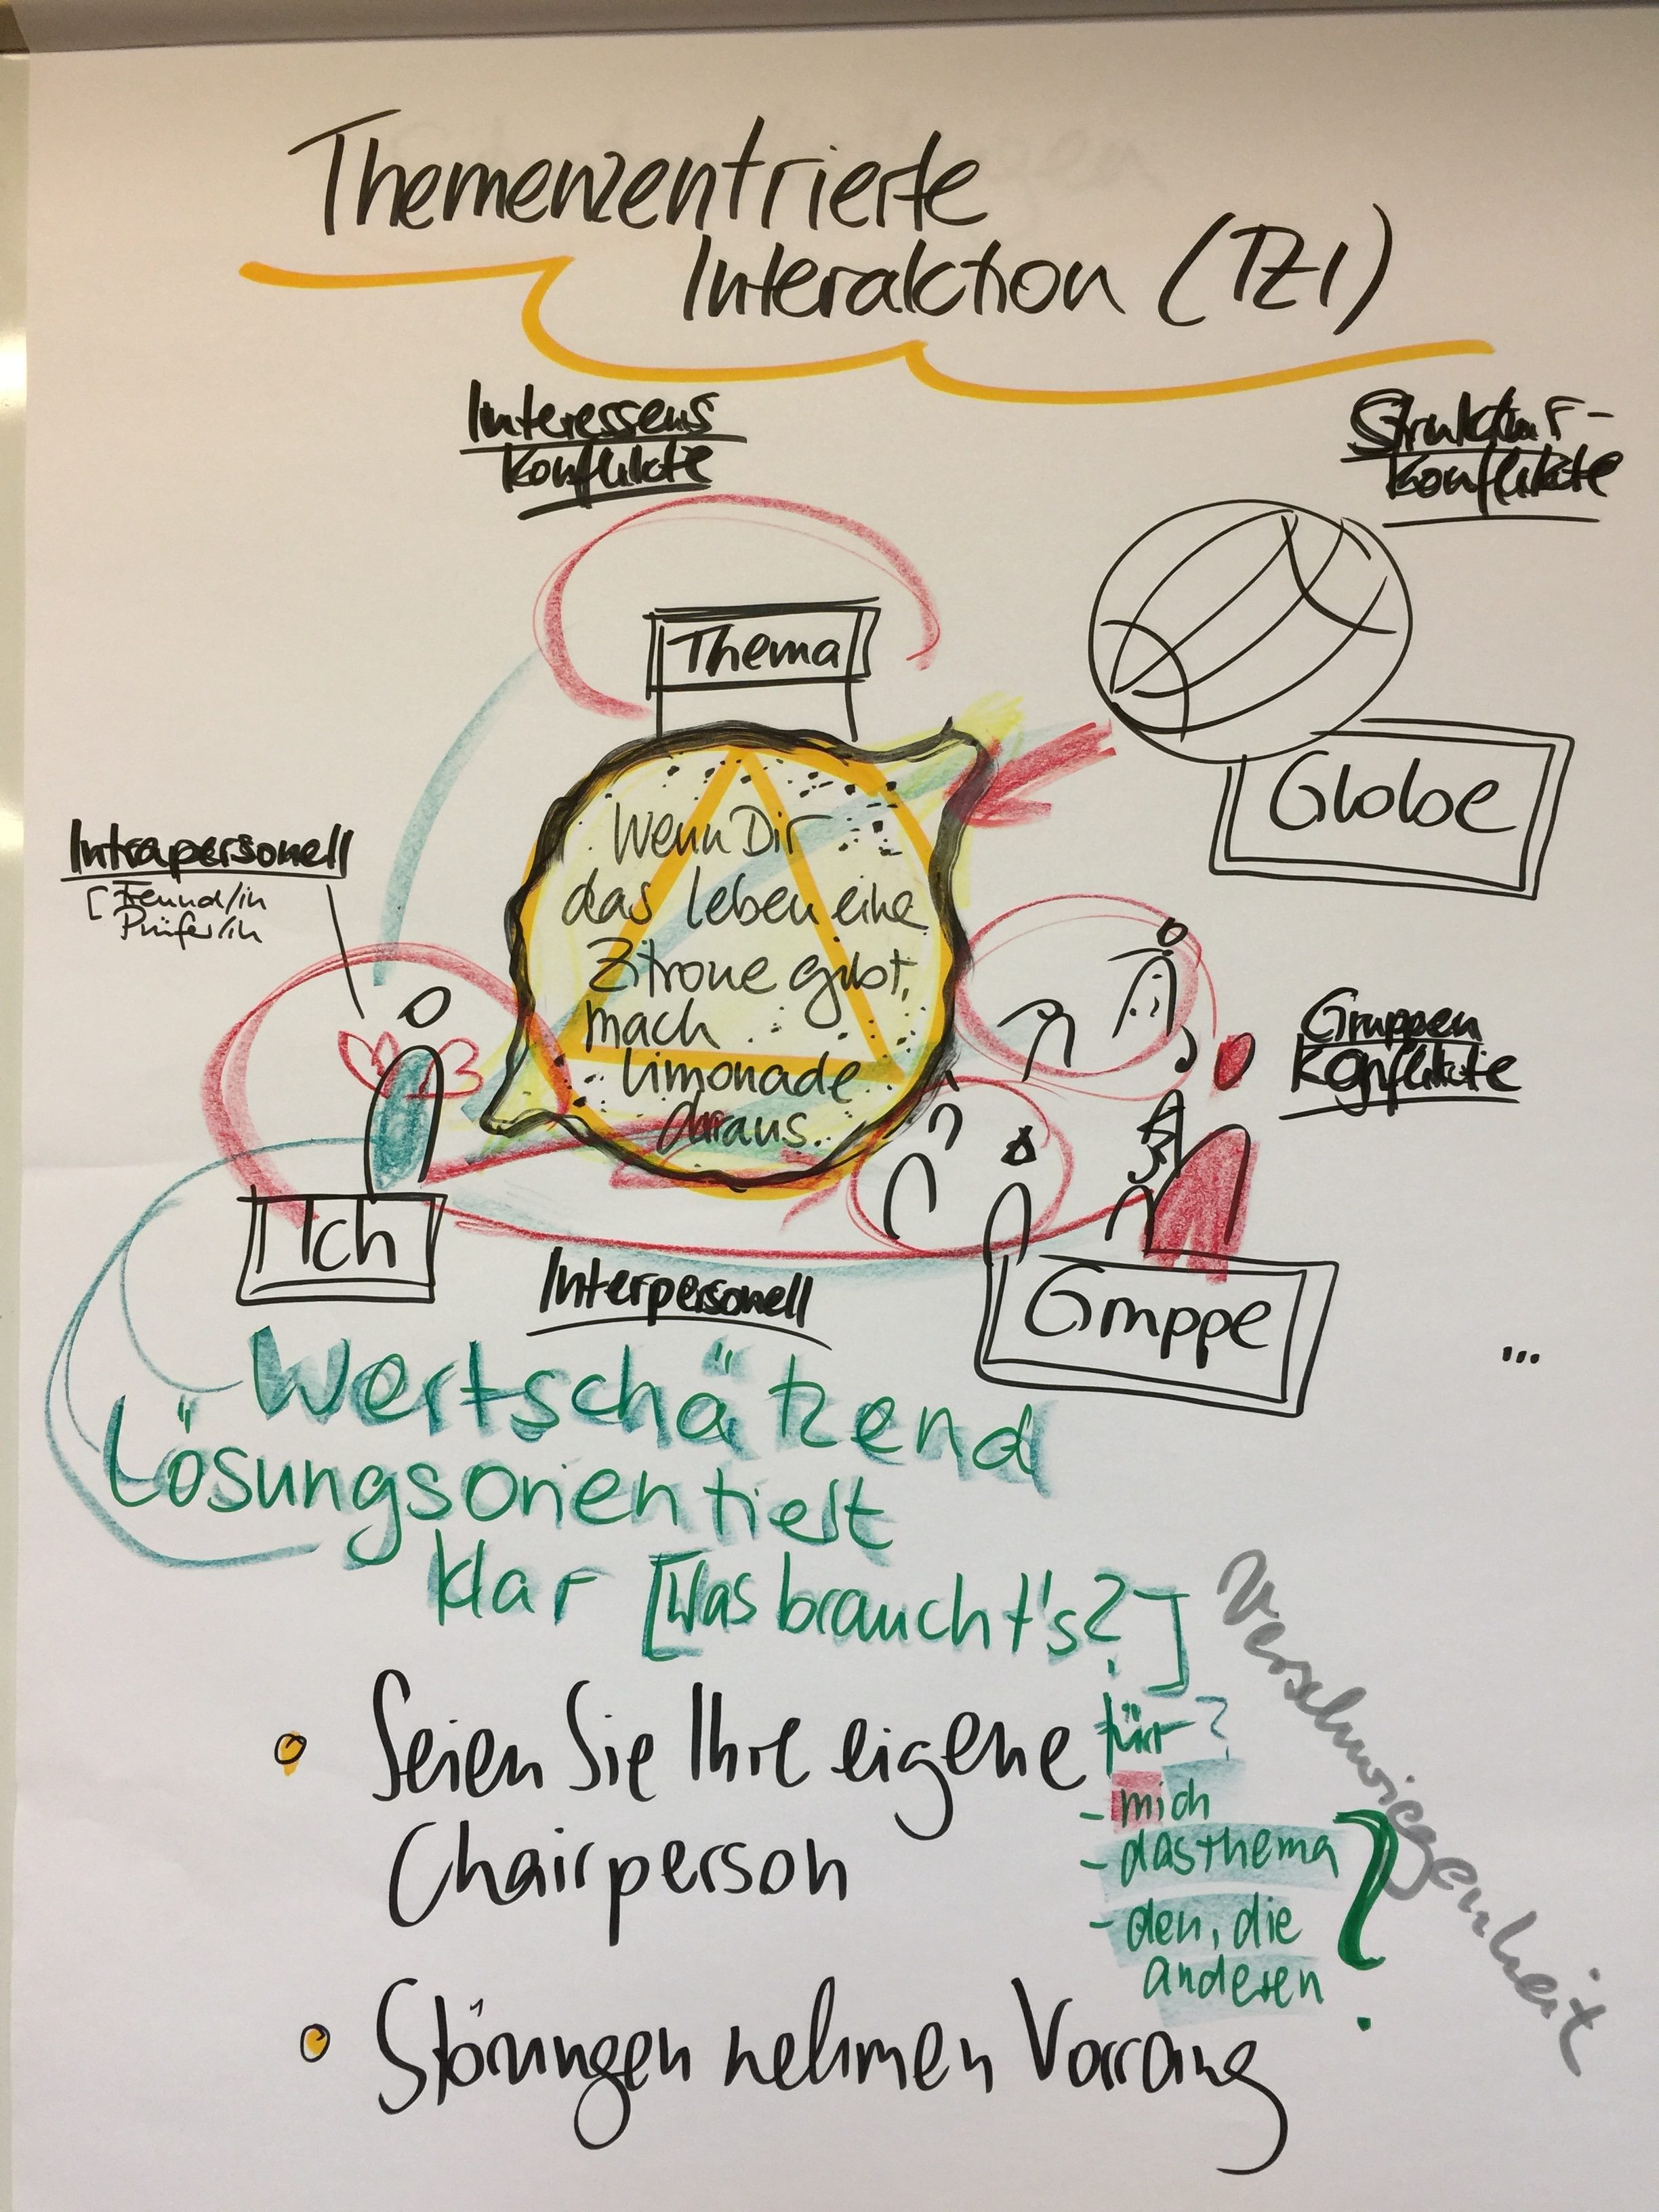 Themenzentrierte
Interaktion (TZI)
Interessens
Konflikte
Struktur-
Konflikte
Thema
Globe
Wenn Dir
das Leben eine
Zitrone gibt,
mach
Limonade
draus.
Intrapersonell
[Freund/in
Prüfer/in
Gruppen
Konflikte
Ich
Interpersonell
Gruppe
...
Wertschätzend
Lösungsorientiert
klar [Was braucht's?]
für?
- mich
- das Thema
- den, die
anderen
?
Verschwiegenheit
Seien Sie Ihre eigene
Chairperson
Störungen nehmen Vorrang